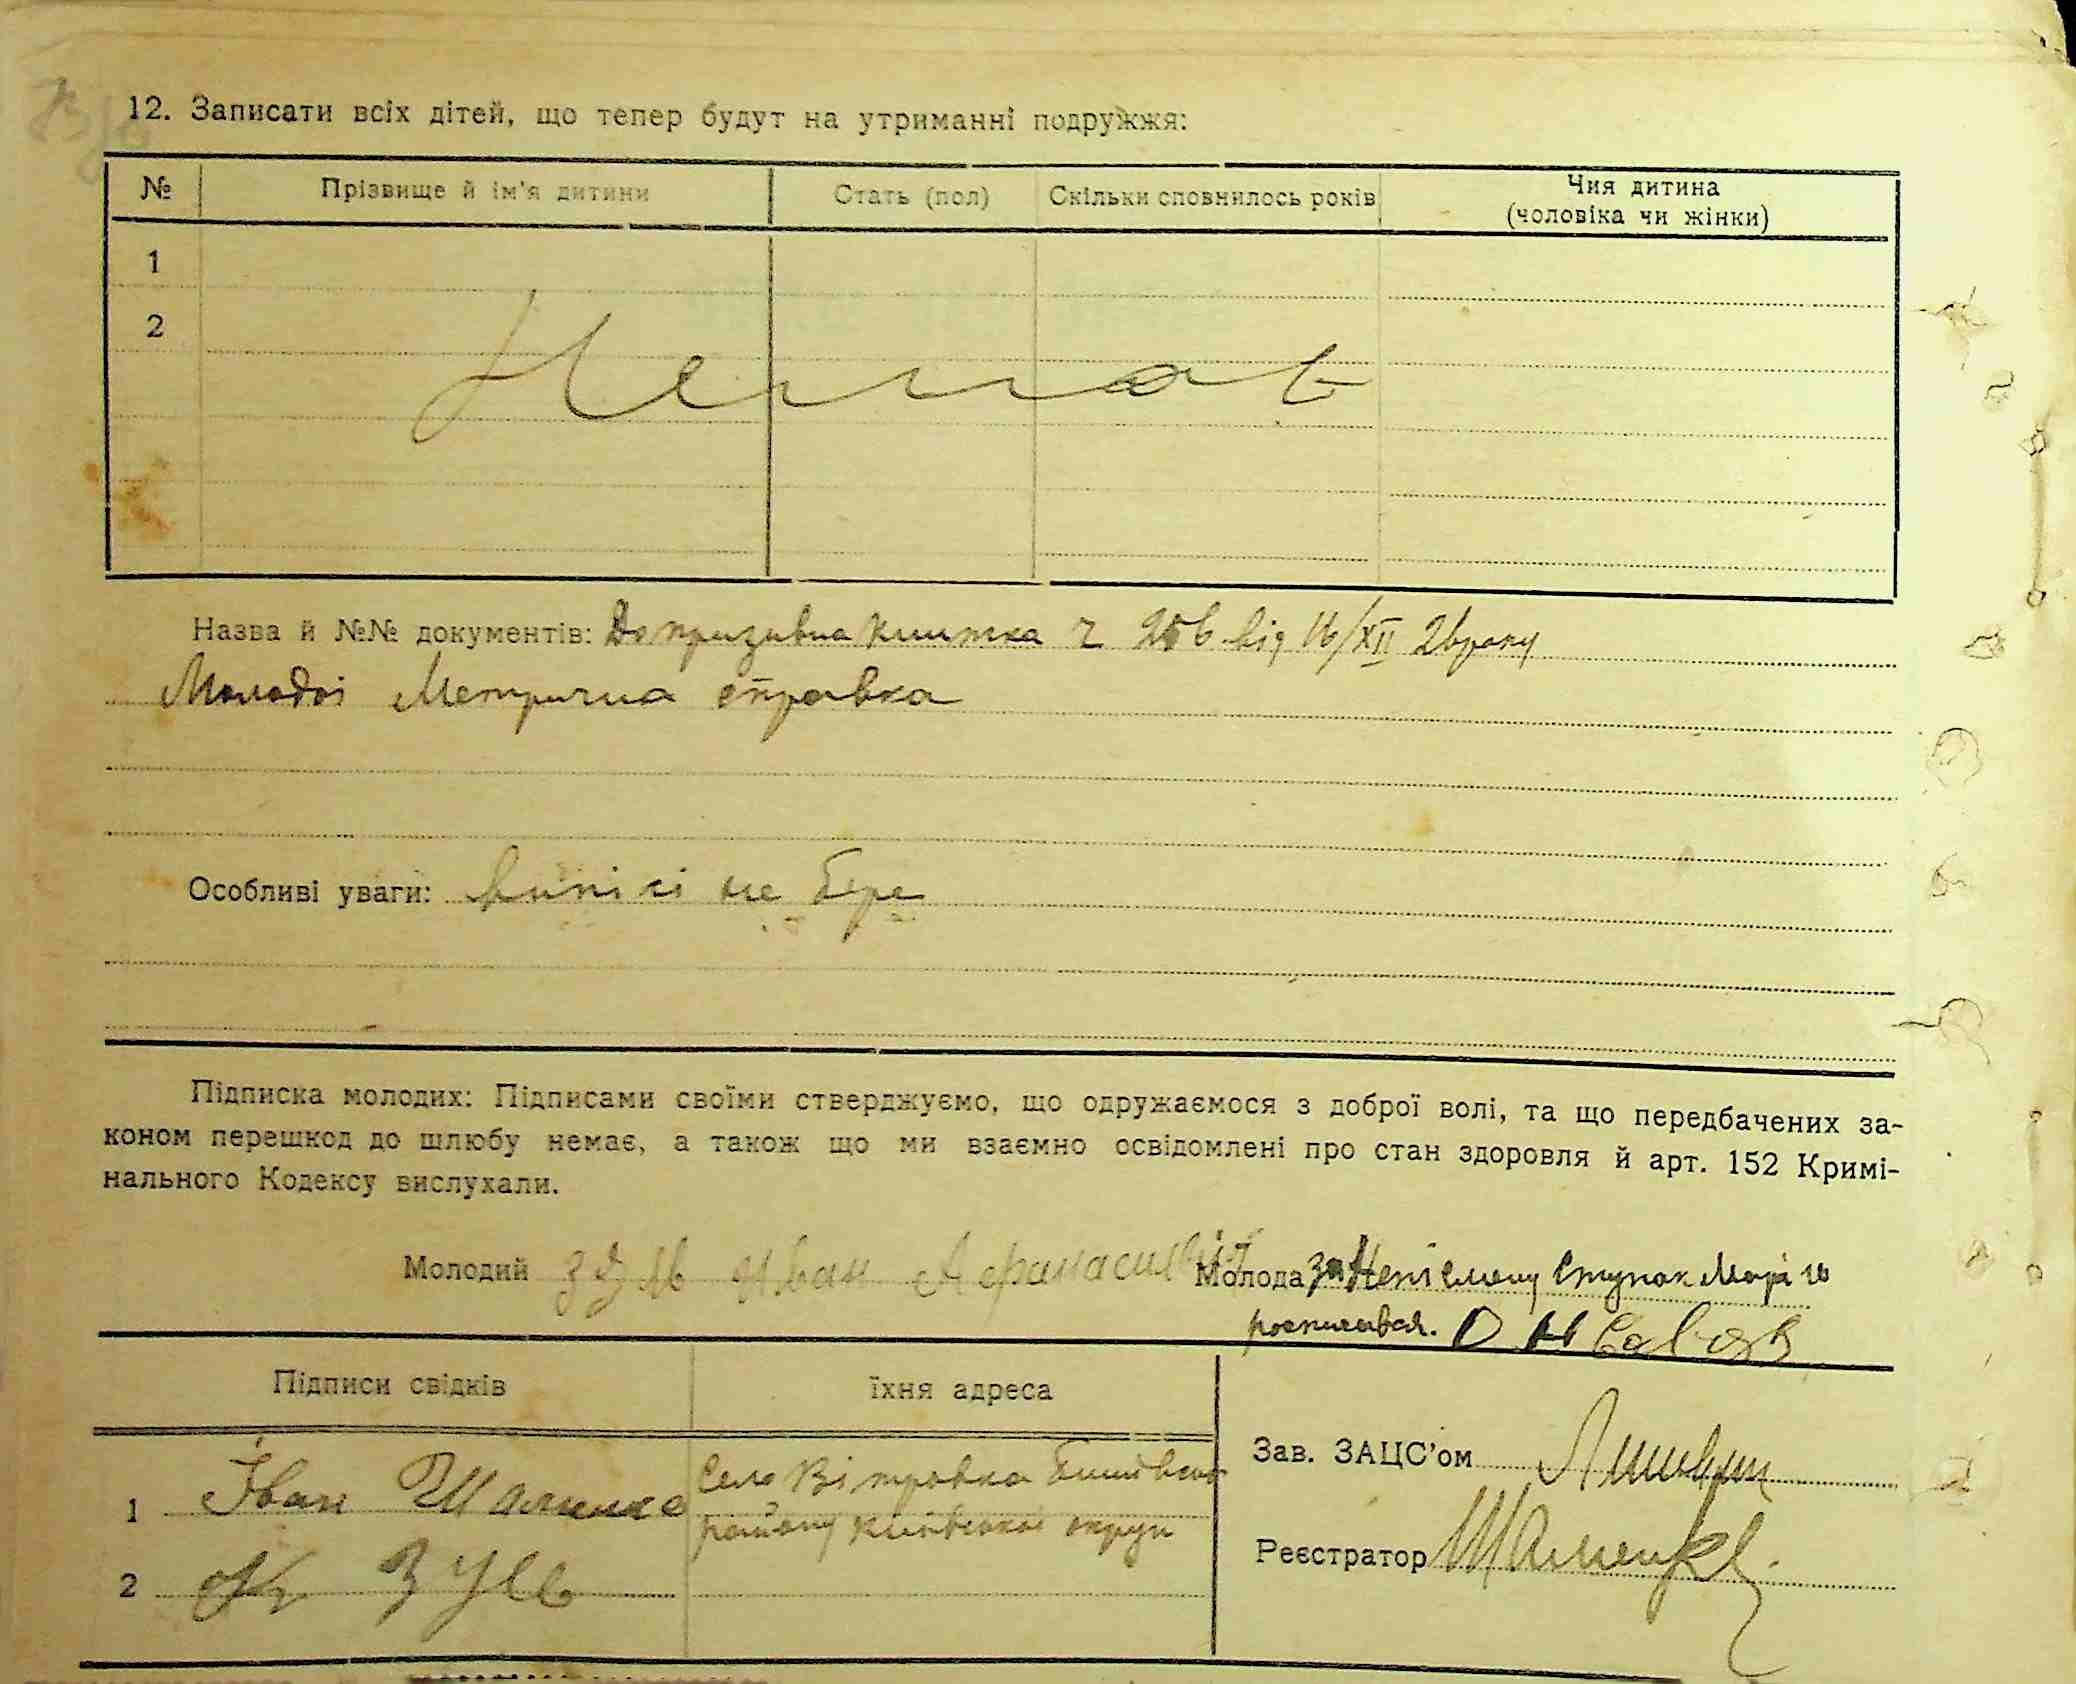 12. Записати всіх дітей, що тепер будут на утриманні подружжя:
№ Прізвище й ім'я дитини Стать (пол) Скільки сповнилось років Чия дитина
(чоловіка чи жінки)
1
2
Немає
Назва й №№ документів: Допризивна книжка ч від 16/XII 26 року
Молодої Метрична справка
Особливі уваги: не бере
Підписка молодих: Підписами своїми стверджуємо, що одружаємося з доброї волі, та що передбачених за-
коном перешкод до шлюбу немає, а також що ми взаємно освідомлені про стан здоровля й арт. 152 Кримі-
нального Кодексу вислухали.
Молодий Зуль Иван Афанасиевич Молода за Неписмену Ступак Марію
росписався.
Підписи свідків їхня адреса
Зав. ЗАЦС'ом
1 Іван Шаменко Село Вітровка
району Київської округи
Реєстратор
2 Зуль